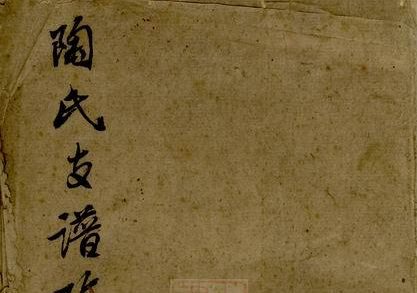 陶氏支譜